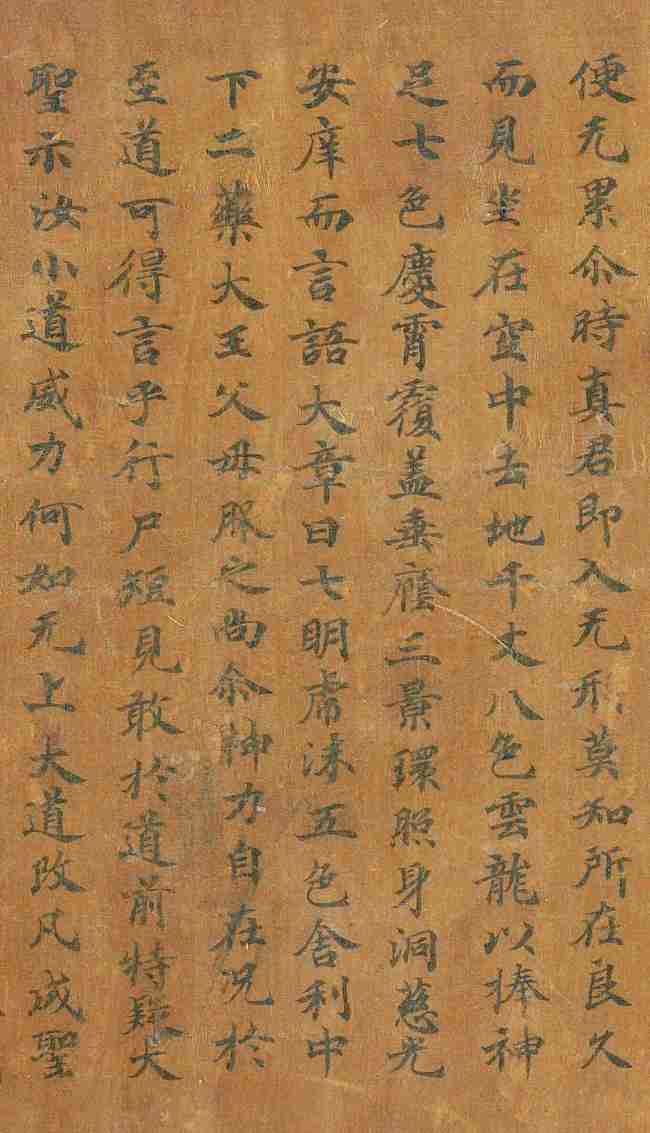 便无累尒時真君即入无形莫知所在良久
而見坐在空中去地千丈八色雲龍以捧神
足七色慶霄覆盖垂廕三景環照身洞慈光
安庠而言語大章曰七明席沬五色舍利中
下二藥大王父母服之尚尒神力自在况於
至道可得言乎行尸短見敢於道前特疑大
聖示汝小道威力何如无上大道改凡成聖